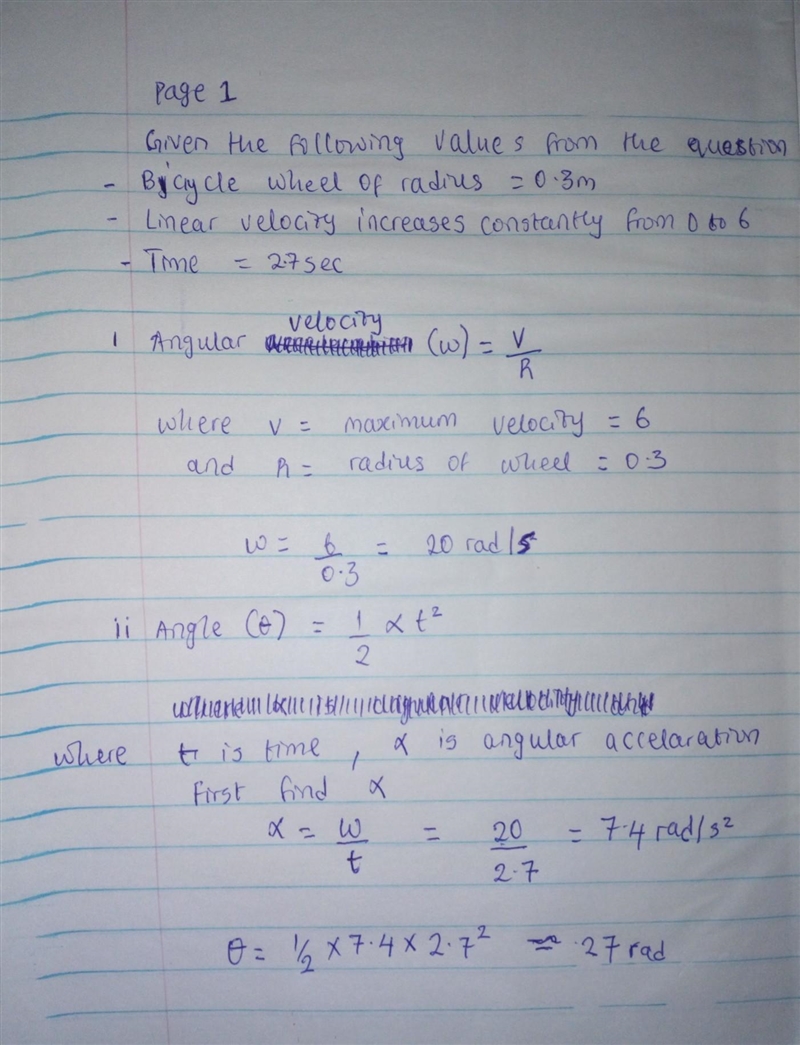 Page 1
Given the following values from the question
- Bicycle wheel of radius = 0.3m
- Linear velocity increases constantly from 0 to 6
- Time = 2.7sec
i Angular velocity (w) = V/R
where V = maximum velocity = 6
and R = radius of wheel = 0.3
w = 6/0.3 = 20 rad/s
ii Angle (θ) = 1/2 α t²
where t is time, α is angular accelaration
First find α
α = w/t = 20/2.7 = 7.4 rad/s²
θ = 1/2 × 7.4 × 2.7² ≈ 27 rad